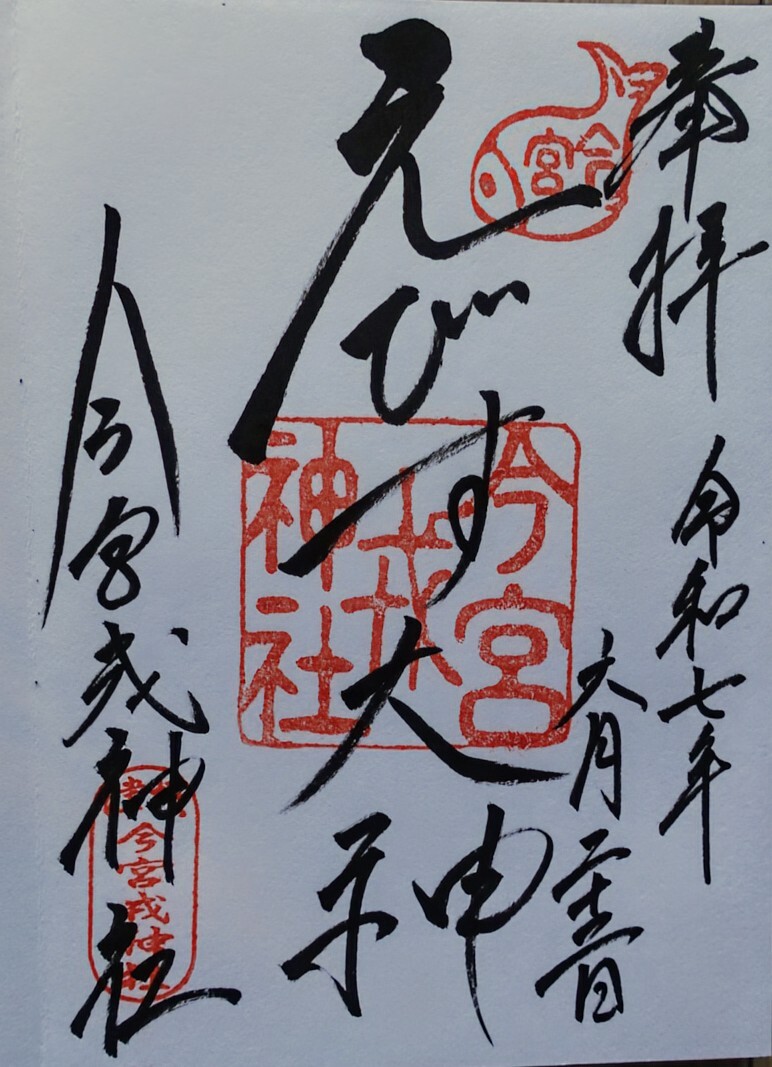 奉拝
令和七年
六月
今宮
えびす大神
今宮
戎
神社
今宮戎神社
今宮戎神社